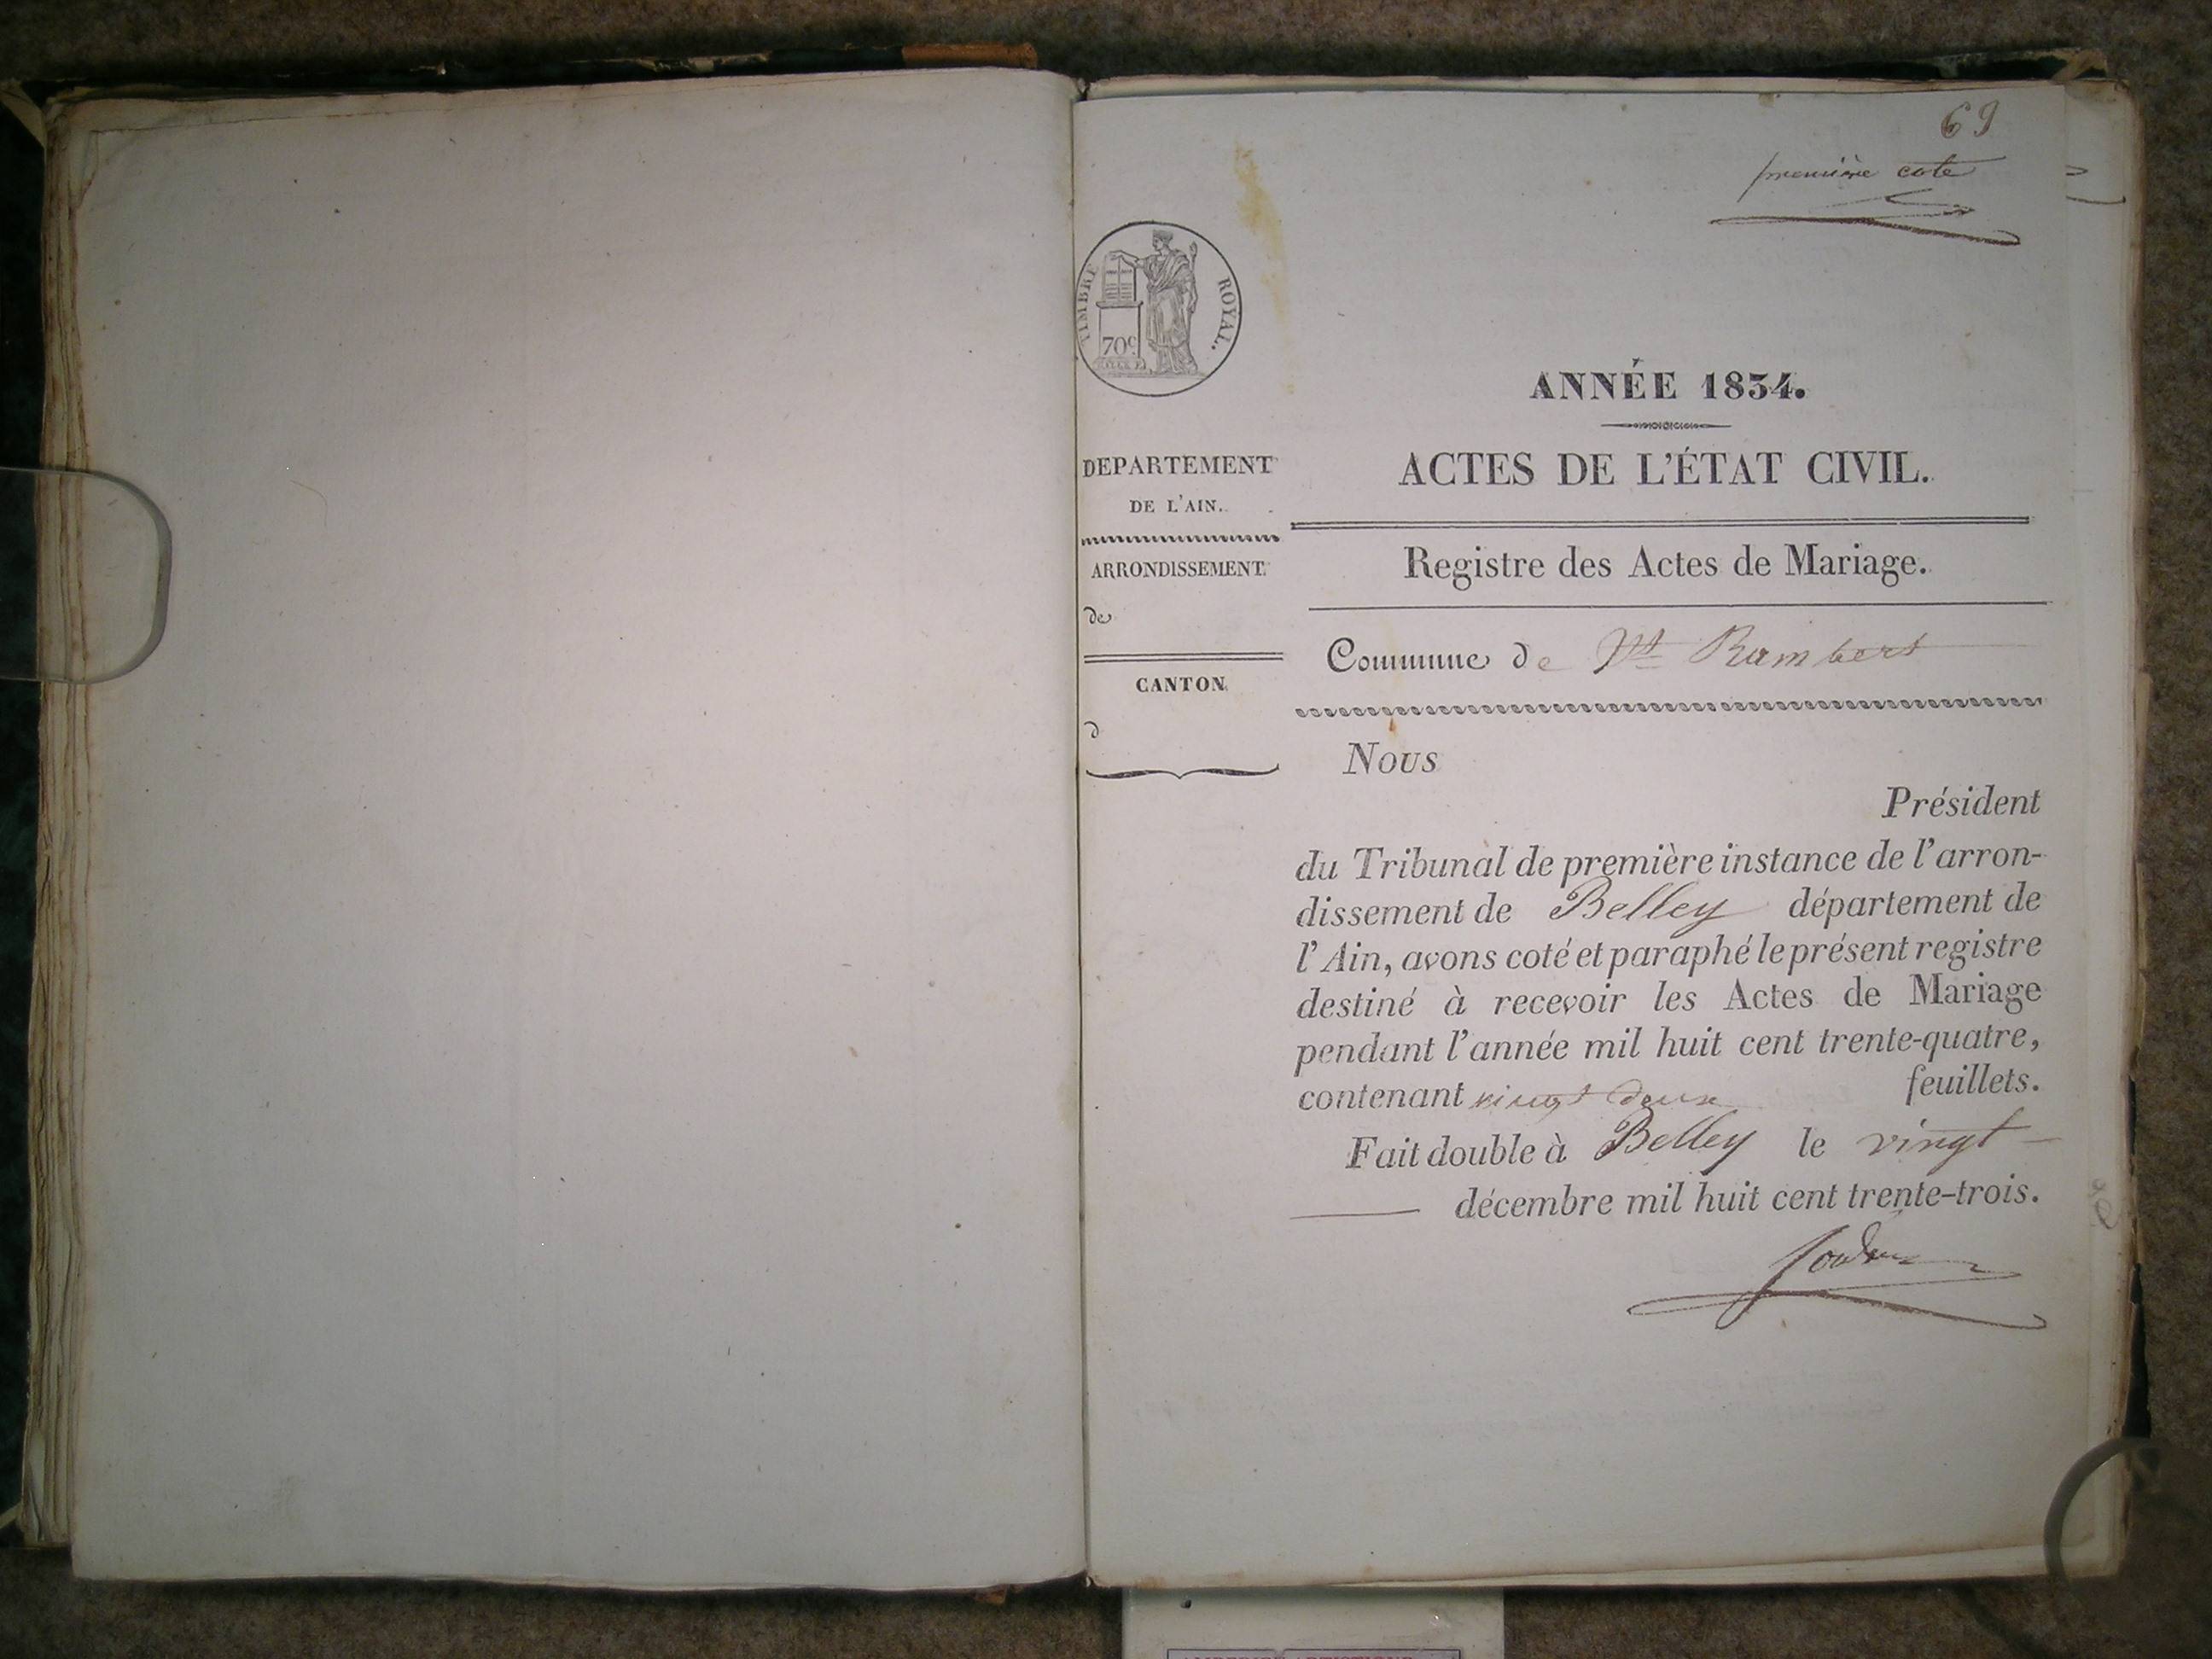 69
première cote
TIMBRE ROYAL.
70c
ANNÉE 1834.
ACTES DE L'ÉTAT CIVIL.
DEPARTEMENT
DE L'AIN.
ARRONDISSEMENT
de
CANTON
d
Registre des Actes de Mariage.
Commune de St Rambert
Nous
Président
du Tribunal de première instance de l'arron-
dissement de Belley département de
l'Ain, avons coté et paraphé le présent registre
destiné à recevoir les Actes de Mariage
pendant l'année mil huit cent trente-quatre,
contenant vingt deux feuillets.
Fait double à Belley le vingt
décembre mil huit cent trente-trois.